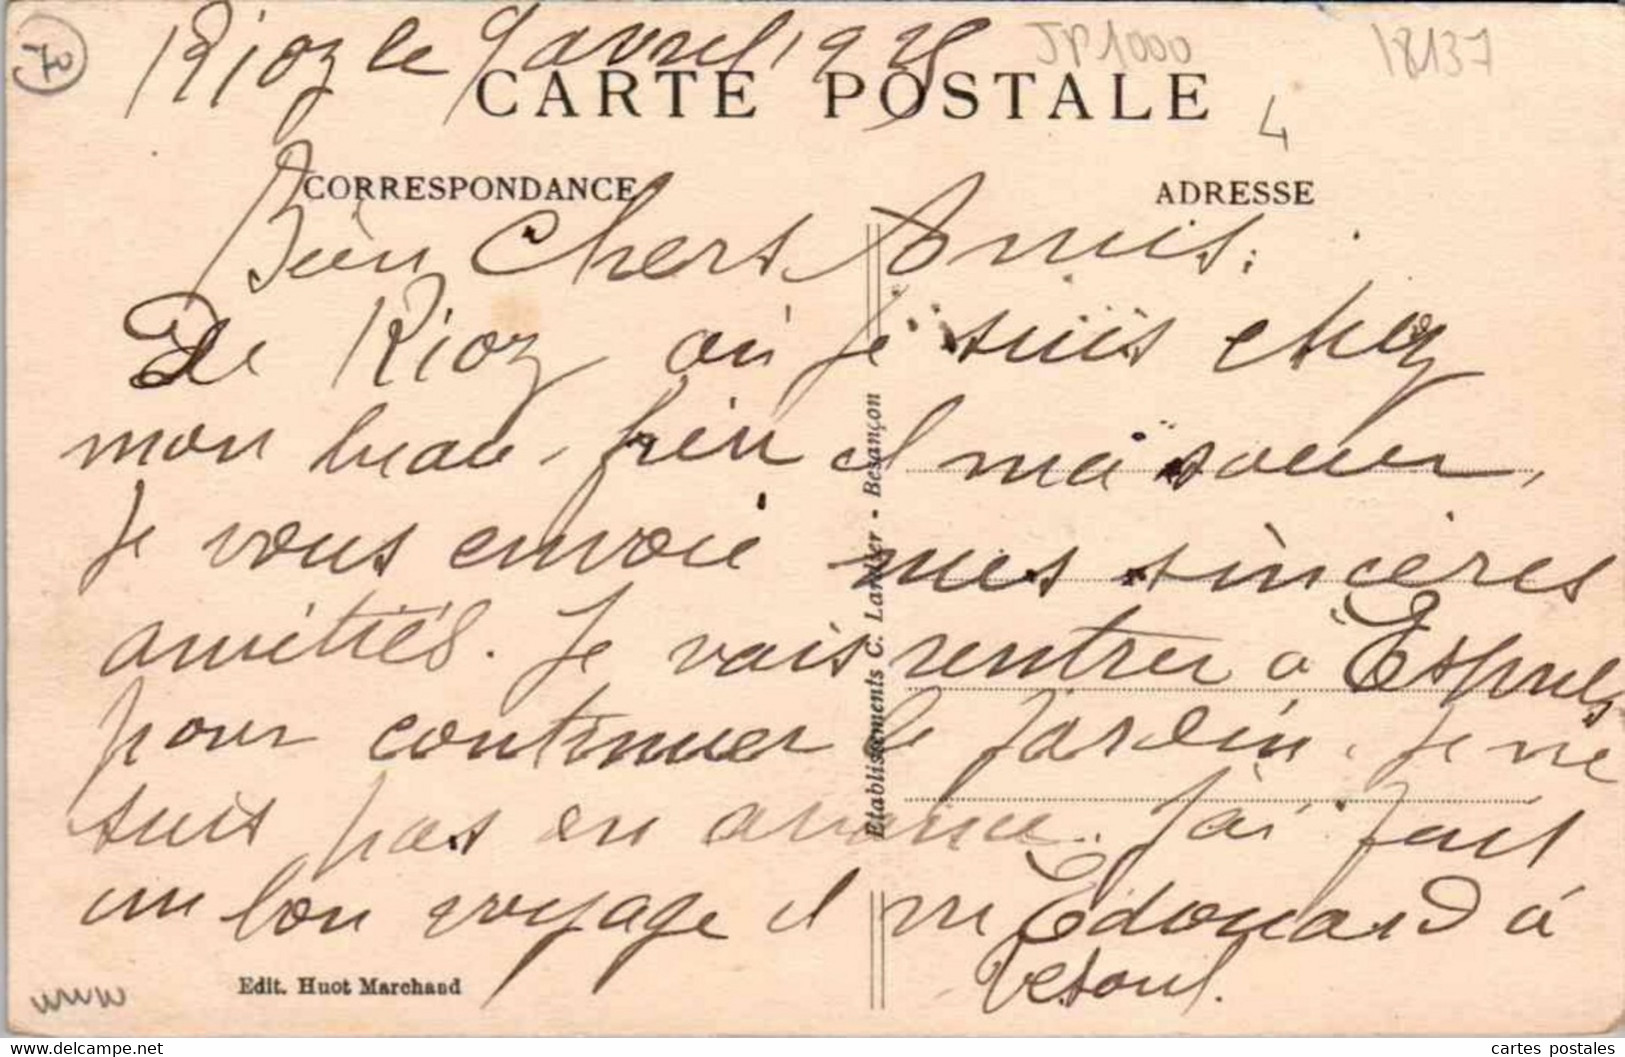 70
Rioz le 9 avril 1928
JP1000
18137
CARTE POSTALE
4
CORRESPONDANCE
ADRESSE
Bien Chers Amis.
De Rioz où je suis chez
mon beau-frère et ma soeur,
Je vous envoie mes sincères
amitiés. Je vais rentrer à Esprels
pour continuer le jardin. Je ne
suis pas en avance. J'ai fait
un bon voyage et vu Edouard à
Vesoul.
Etablissements C. Lardier - Besançon
Edit. Huot Marchand
www.delcampe.net
cartes postales